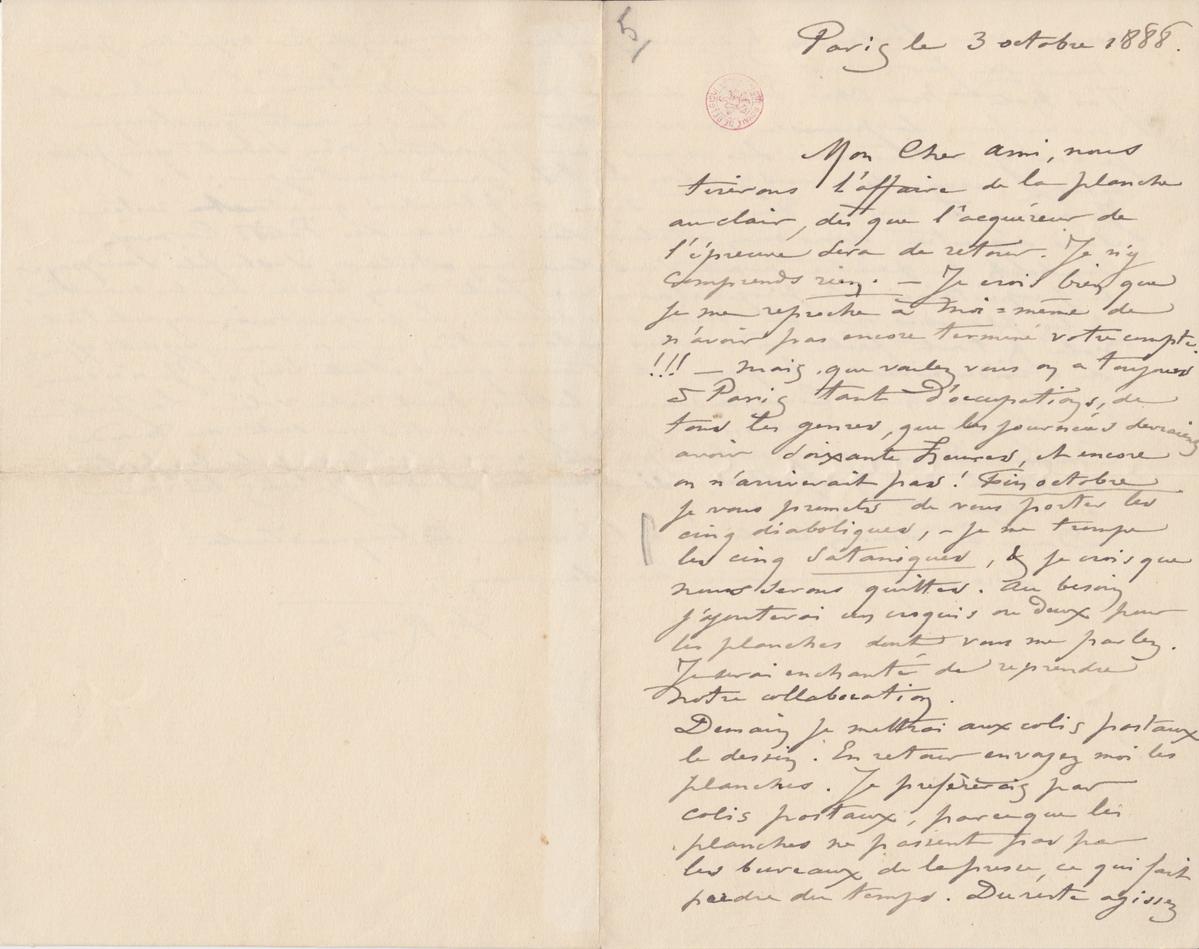 5/
Paris le 3 octobre 1888.
Mon Cher ami, nous
tirerons l'affaire de la planche
au clair, dès que l'acquéreur de
l'épreuve sera de retour. Je n'y
comprends rien. — Je crois bien que
je me reproche à moi=même de
n'avoir pas encore terminé votre compte.
!!! — mais, que voulez vous on a toujours
à Paris tant d'occupations, de
tous les genres, que les journées devraient
avoir soixante heures, et encore
on n'arriverait pas! Fin octobre
je vous promets de vous porter les
cinq diaboliques, – je me trompe
les cinq sataniques, & je crois que
nous serons quittes. Au besoin
j'ajouterai un croquis ou deux pour
les planches dont vous me parlez.
Je serai enchanté de reprendre
notre collaboration.
Demain je mettrai aux colis postaux
le dessin. En retour envoyez moi les
planches. Je préfèrerais par
colis postaux, parceque les
planches ne passent pas par
les bureaux de la presse, ce qui fait
perdre du temps. Du reste agissez